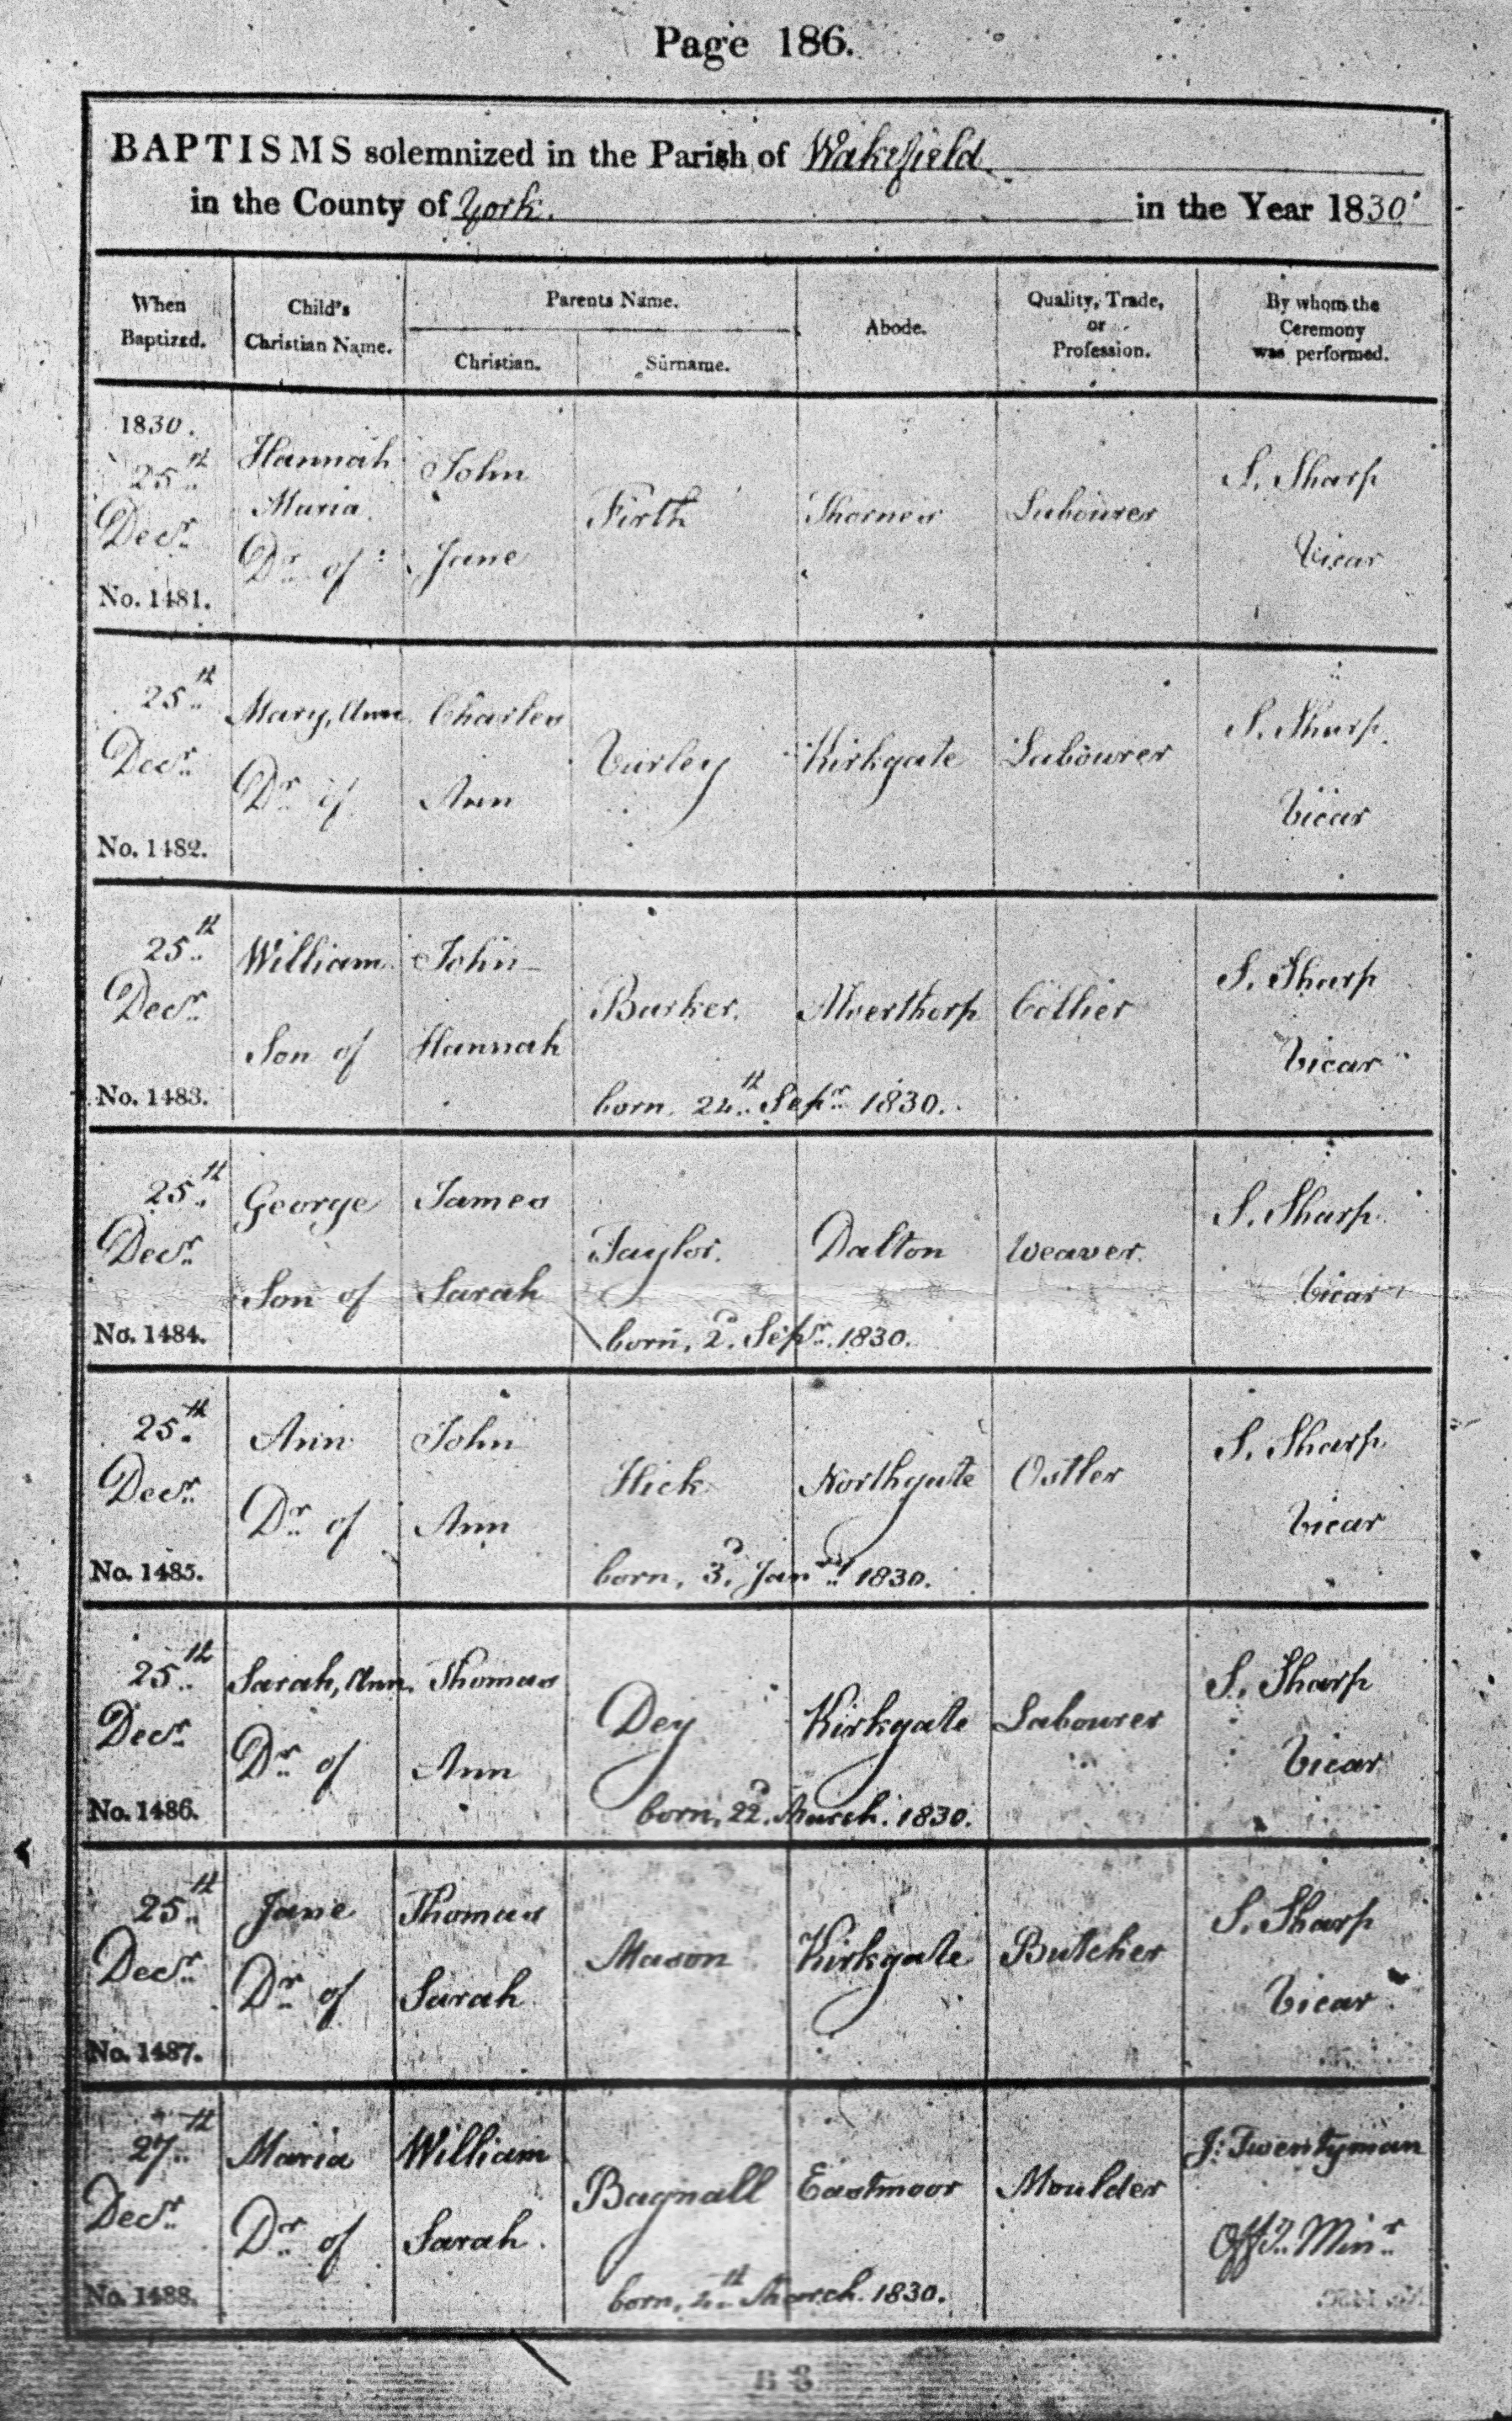 Page 186.
BAPTISMS solemnized in the Parish of Wakefield
in the County of York. in the Year 1830
When Baptized. Child's Christian Name. Parents Name. Christian. Surname. Abode. Quality, Trade, or Profession. By whom the Ceremony was performed.
1830.
25th Hannah John S. Sharp
Maria Firth Thornes Labourer
Decr Dr of Jane Vicar
No. 1481.
25th Mary, Ann Charles S. Sharp
Decr Varley Kirkgate Labourer
Dr of Ann Vicar
No. 1482.
25th William John S. Sharp
Decr Barker. Alverthorp Collier
Son of Hannah Vicar
No. 1483. born. 24th Sepr 1830.
25th George James S. Sharp
Decr Taylor. Dalton Weaver.
Son of Sarah Vicar
No. 1484. born, 2d. Sepr. 1830.
25th Ann John S. Sharp
Decr Hick Northgate Ostler
Dr of Ann Vicar
No. 1485. born, 3d. Jany 1830.
25th Sarah, Ann. Thomas S. Sharp
Decr Dey Kirkgate Labourer
Dr of Ann Vicar
No. 1486. born, 22d. March. 1830.
25th Jane Thomas S. Sharp
Decr Mason Kirkgate Butcher
Dr of Sarah Vicar
No. 1487.
27th Maria William J. Twentyman
Decr Bagnall Eastmoor Moulder
Dr of Sarah. Offg. Minr
No. 1488. born, 4th March. 1830.